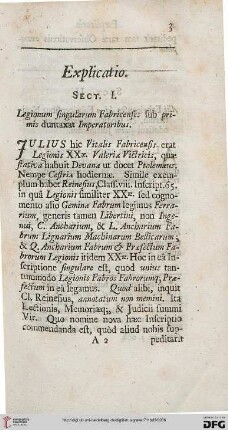 3
Explicatio.
SECT. I.
Legionum singularum Fabricenses sub pri-
mis duntaxat Imperatoribus.
JULIUS hic Vitalis Fabricensis erat
Legionis XXæ. Valeriæ Victricis, quæ
stativa habuit Devanæ ut docet Ptolemæus,
Nempe Cestriæ hodiernæ. Simile exem-
plum habet Reinesius, Class. viii. Inscript. 65.
in quâ Legionis similiter XXæ. sed cogno-
mento alio Geminæ Fabrum legimus Ferra-
rium, generis tamen Libertini, non Inge-
nui, C. Ancharium, & L. Ancharium Fa-
brum Lignarium Machinarum Bellicarum,
& Q. Ancharium Fabrum & Præfectum Fa-
brorum Legionis itidem XXæ. Hoc in eâ In-
scriptione singulare est, quod unius tan-
tummodo Legionis Fabros Fabrorumq; Præ-
fectum in eâ legamus. Quod alibi, inquit
Cl. Reinesius, annotatum non memini, ista
Lectionis, Memoriæq; & Judicii summi
Vir. Quo nomine nova hæc Inscriptio
commendanda est, quod aliud nobis sup-
A 2 peditarit